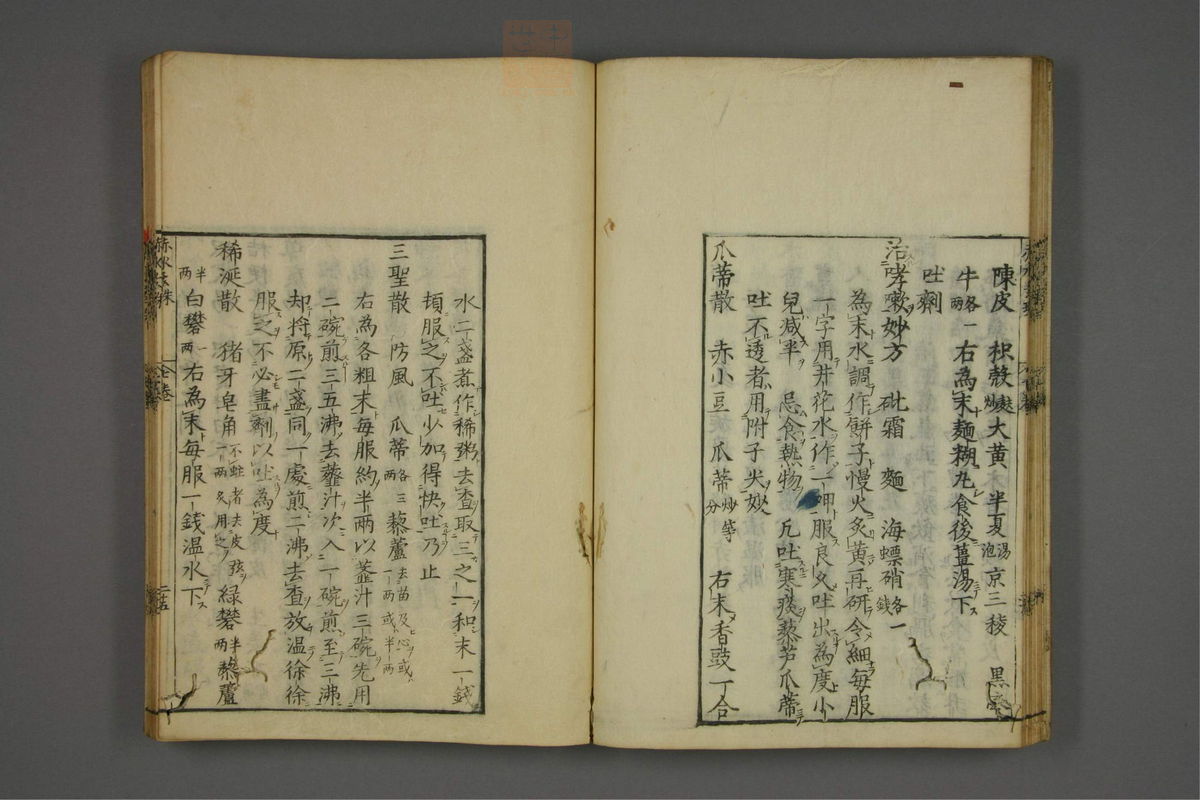 陳皮 枳殼麩炒大黃 半夏湯泡京三稜 黑牽
牛各一兩右為末麵糊丸食後薑湯下
吐劑
治哮嗽妙方 砒霜 麵 海螵硝各一錢
為末水調作餅子慢火炙黃再研令細每服
一字用井花水作一呷服良久吐出為度小
兒减半 忌食熱物 凡吐寒痰藜芦瓜蒂
吐不透者用附子尖妙
瓜蒂散 赤小豆 瓜蒂炒等分 右末香豉一合
水二盞煮作稀粥去査取三之一和末一錢
頓服之不吐少加得快吐乃止
三聖散 防風 瓜蒂各三兩 藜蘆去苗及心或一兩或半兩
右為各粗末每服約半兩以虀汁三碗先用
二碗煎三五沸去虀汁次入一碗煎至三沸
却將原二盞同一處煎二沸去査放温徐徐
服之不必盡劑以吐為度
稀涎散 猪牙皂角不蛀者去皮弦一兩炙用之 緑礬半兩藜蘆
半兩白礬一兩右為末每服一錢温水下